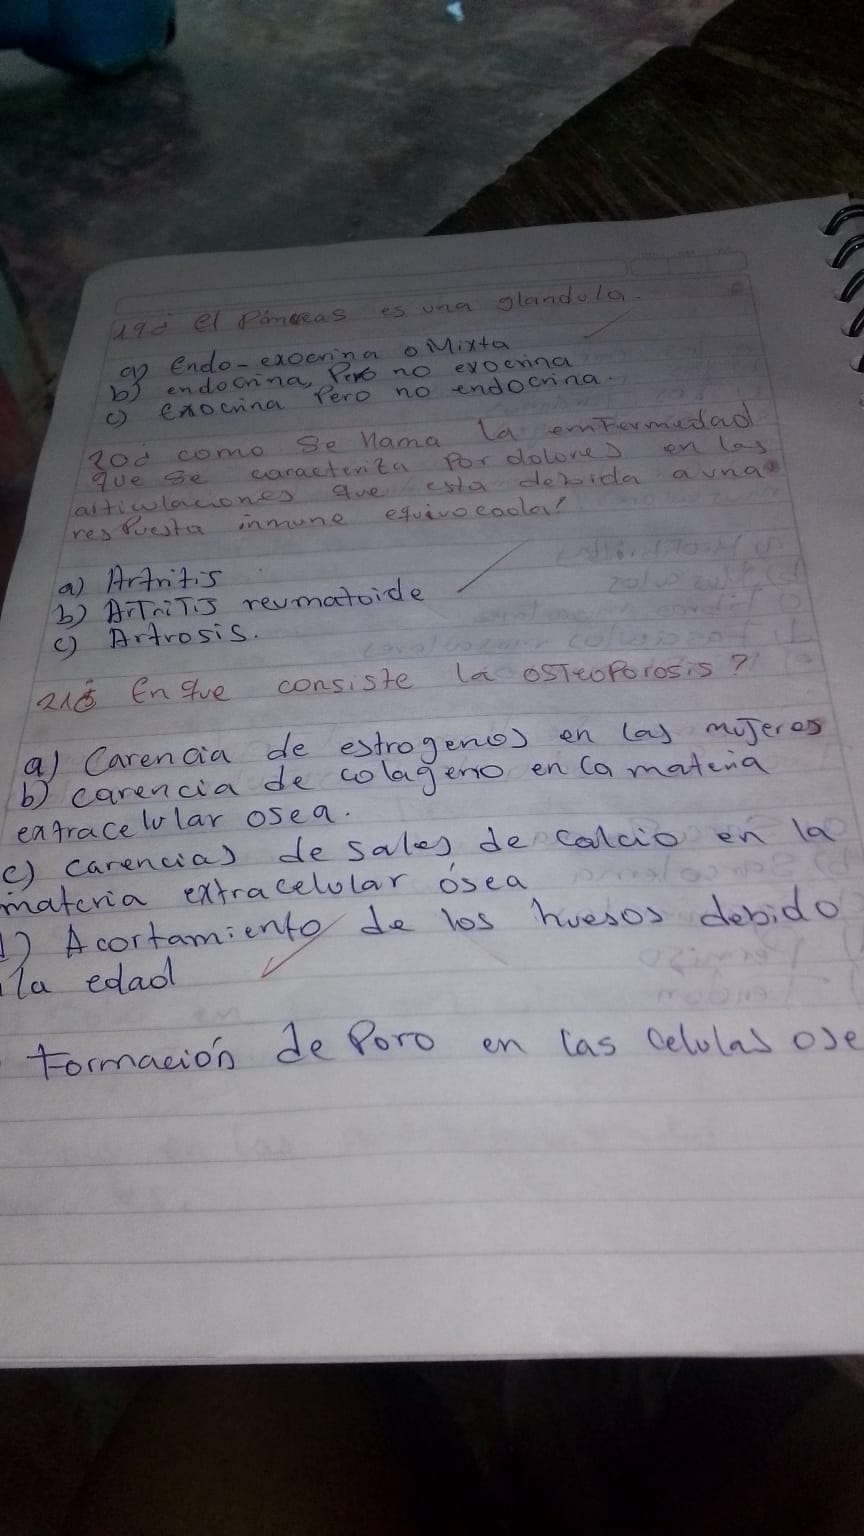 19d el Páncreas es una glandula.
a) Endo-exocrina o Mixta
b) endocrina, Pero no exocrina
c) exocrina Pero no endocrina.
20d como se llama la enfermedad
que se caracteriza Por dolores en las
articulaciones que esta debida a una
respuesta inmune equivocada!
a) Artritis
b) ArTriTis reumatoide
c) Artrosis.
21d En que consiste la osTeoPorosis?
a) Carencia de estrogenos en las mujeres
b) carencia de colageno en la materia
extracelular osea.
c) carencias de sales de calcio en la
materia extracelular ósea
d) Acortamiento de los huesos debido
la edad
Formación de Poro en las celulas ose